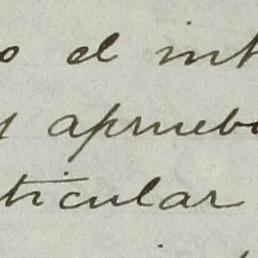 o el int
y aprueba
ticular